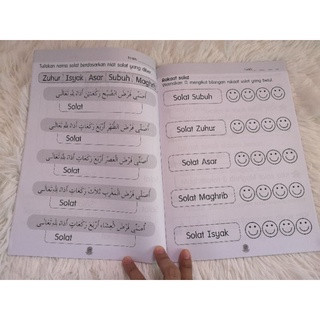 Tuliskan nama solat berdasarkan niat solat yang diberi.
Zuhur Isyak Asar Subuh Maghrib
أُصَلِّي فَرْضَ الصُّبْحِ رَكْعَتَيْنِ أَدَاءً لِلَّهِ تَعَالَى
Solat
أُصَلِّي فَرْضَ الظُّهْرِ أَرْبَعَ رَكَعَاتٍ أَدَاءً لِلَّهِ تَعَالَى
Solat
أُصَلِّي فَرْضَ الْعَصْرِ أَرْبَعَ رَكَعَاتٍ أَدَاءً لِلَّهِ تَعَالَى
Solat
أُصَلِّي فَرْضَ الْمَغْرِبِ ثَلَاثَ رَكَعَاتٍ أَدَاءً لِلَّهِ تَعَالَى
Solat
أُصَلِّي فَرْضَ الْعِشَاءِ أَرْبَعَ رَكَعَاتٍ أَدَاءً لِلَّهِ تَعَالَى
Solat
Rakaat solat
mengikut bilangan rakaat solat yang betul.
Solat Subuh
Solat Zuhur
Solat Asar
Solat Maghrib
Solat Isyak